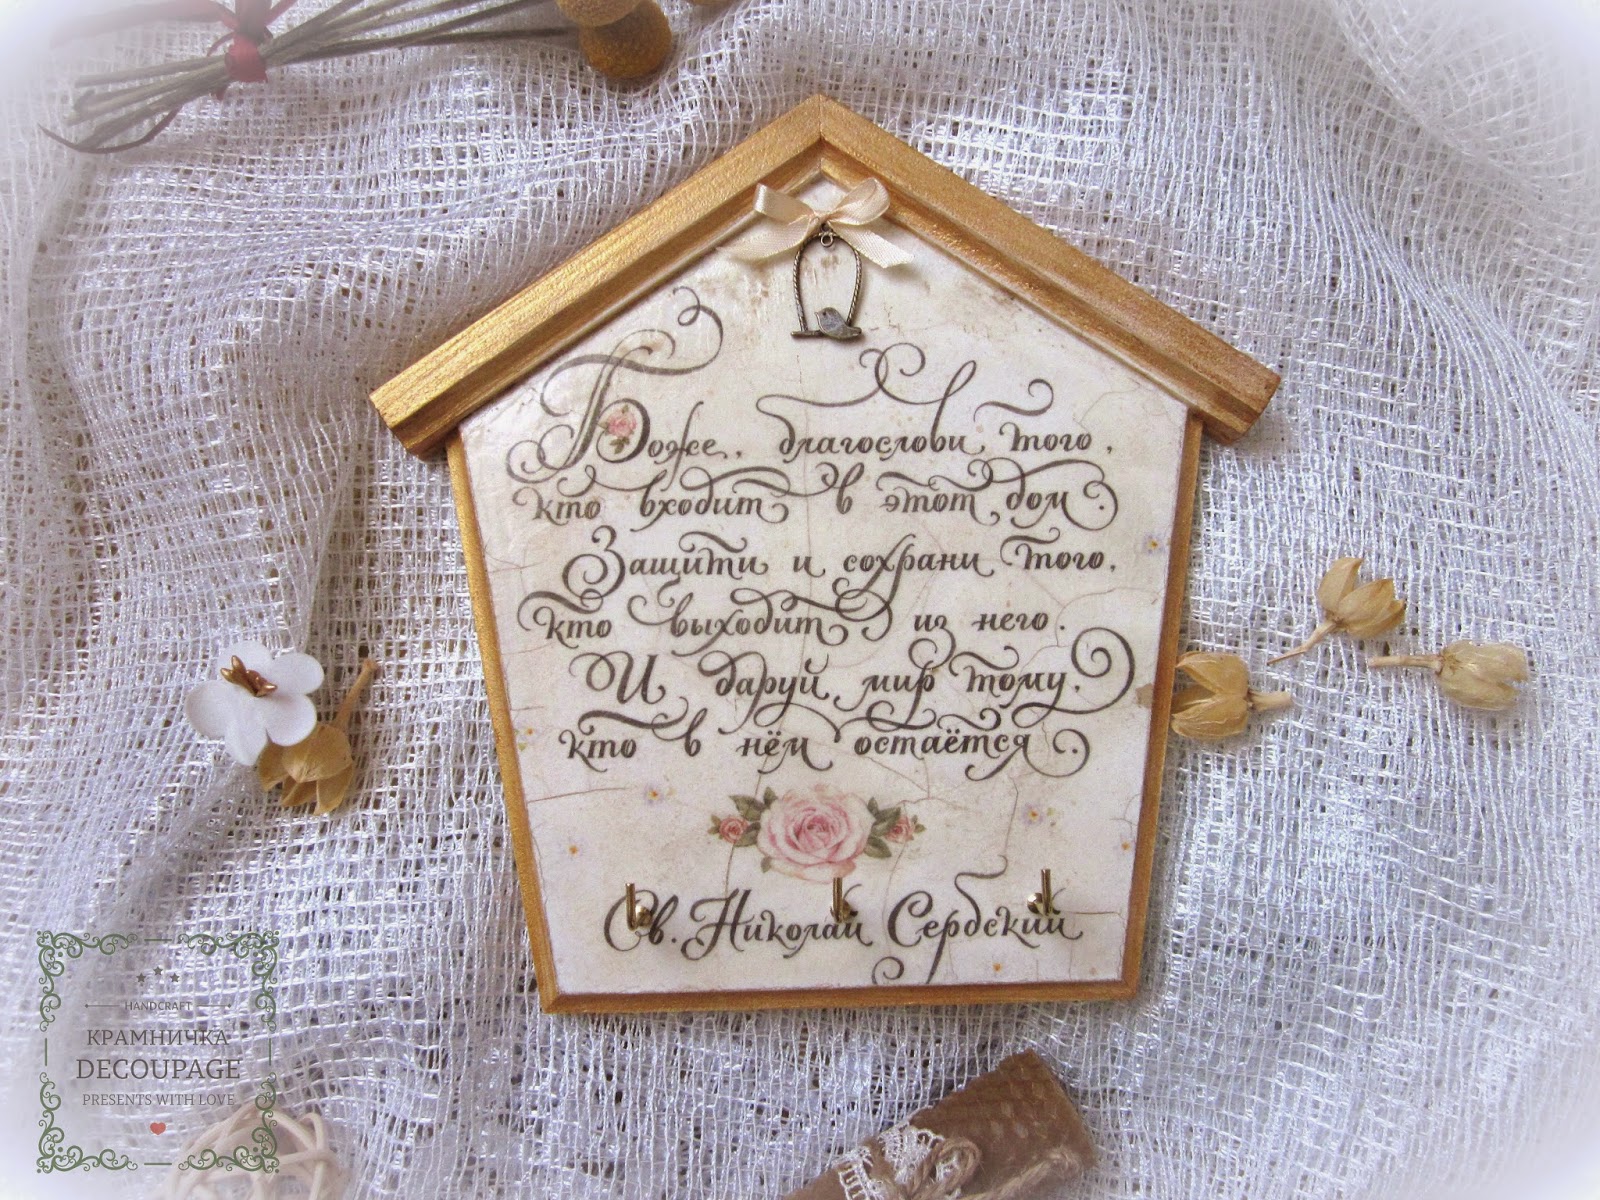 Боже, благослови того,
кто входит в этот дом.
Защити и сохрани того,
кто выходит из него.
И даруй мир тому,
кто в нём остаётся.
Св. Николай Сербский
HANDCRAFT
КРАМНИЧКА
DECOUPAGE
PRESENTS WITH LOVE